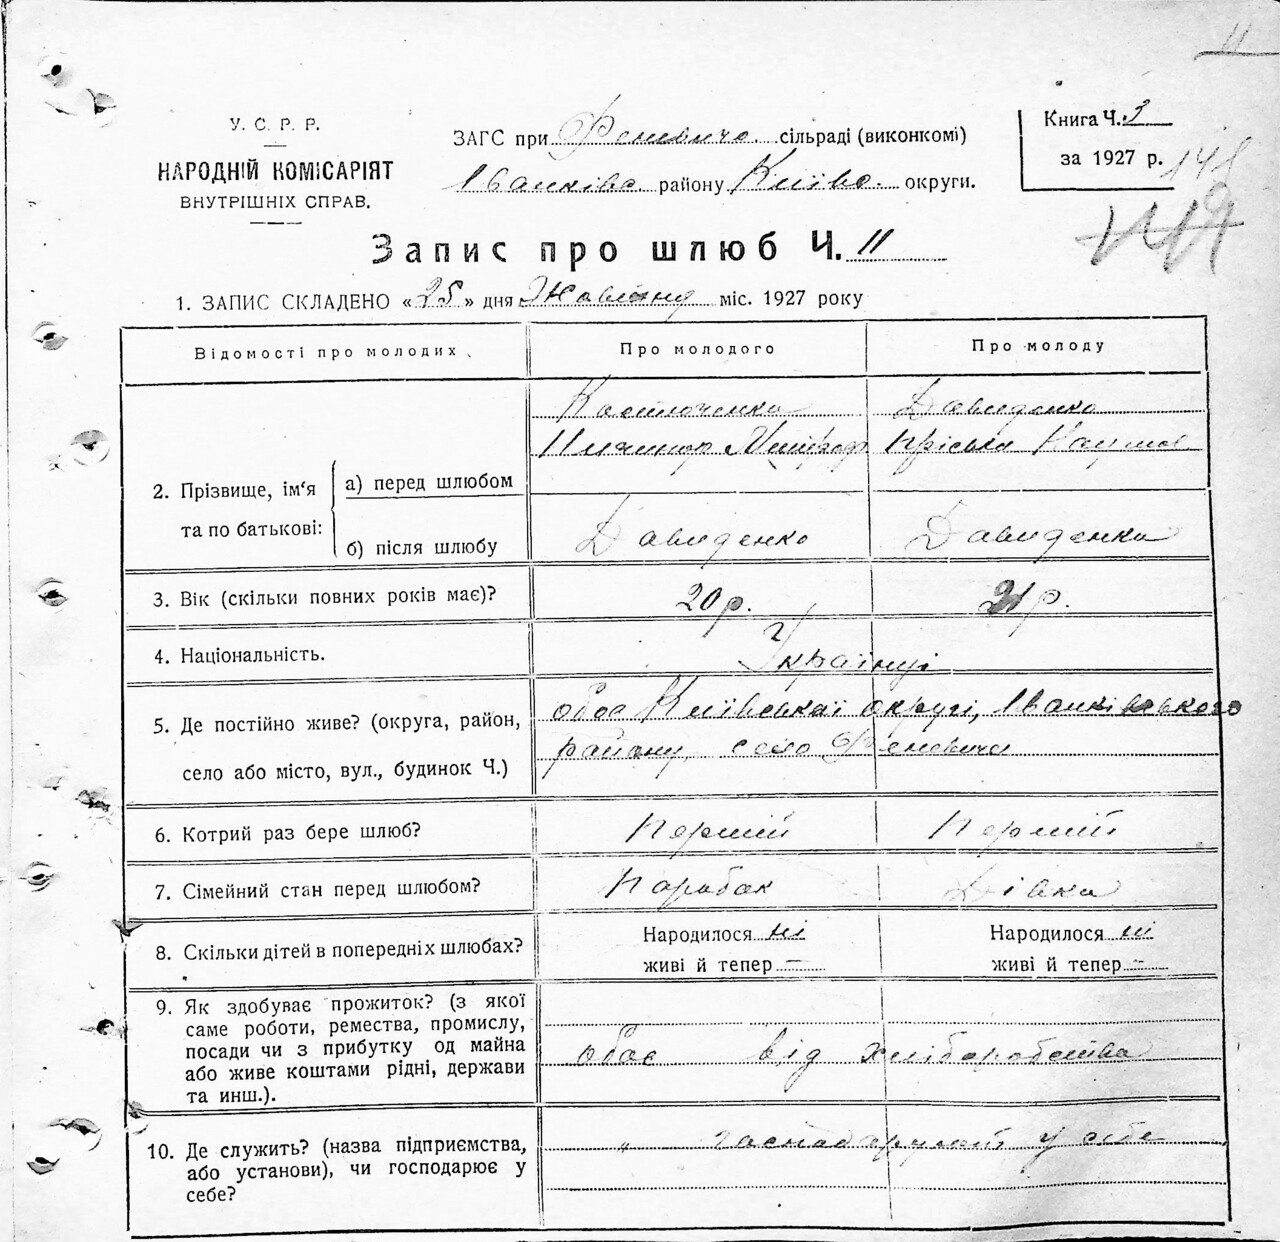 11
У. С. Р. Р.
НАРОДНІЙ КОМІСАРІЯТ
ВНУТРІШНІХ СПРАВ.
ЗАГС при Феневичо сільраді (виконкомі)
Іванківс району Київс. округи.
Книга Ч. 3
за 1927 р.
Запис про шлюб Ч. 11
1. ЗАПИС СКЛАДЕНО «25» дня Жовтня міс. 1927 року
Відомості про молодих
Про молодого
Про молоду
2. Прізвище, ім‘я та по батькові:
а) перед шлюбом
Костюченко
Давиденко
Никинор Митроф
Пріська Наумов
б) після шлюбу
Давиденко
Давиденко
3. Вік (скільки повних років має)?
20 р.
21 р.
4. Національність.
Українці
5. Де постійно живе? (округа, район,
село або місто, вул., будинок Ч.)
обоє Київської округі, Іванківського
району, село Феневичи
6. Котрий раз бере шлюб?
Перший
Перший
7. Сімейний стан перед шлюбом?
Парубок
Дівка
8. Скільки дітей в попередніх шлюбах?
Народилося ні
живі й тепер —
Народилося ні
живі й тепер —
9. Як здобуває прожиток? (з якої
саме роботи, ремества, промислу,
посади чи з прибутку од майна
або живе коштами рідні, держави
та инш.).
обоє від хліборобства
10. Де служить? (назва підприємства,
або установи), чи господарює у
себе?
" господарують у себе